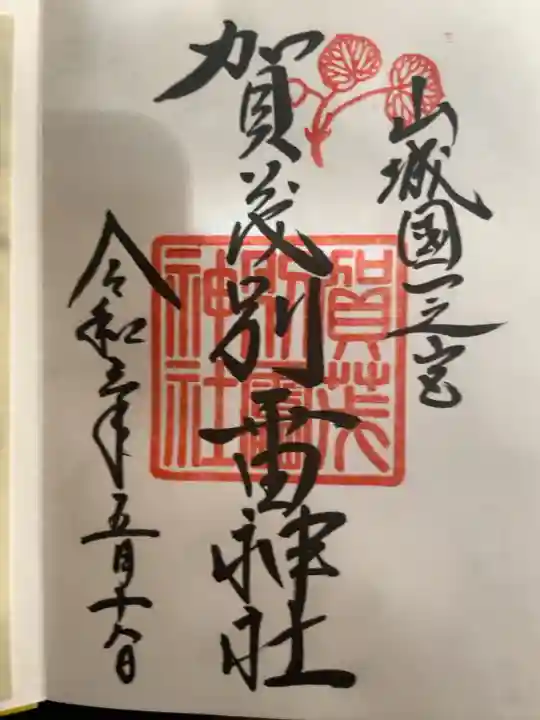 山城国一之宮
賀茂別雷神社
賀茂
別雷
神社
令和三年五月十八日